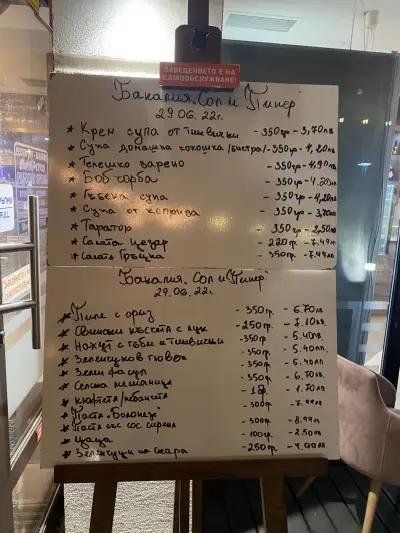 ЗАВЕДЕНИЕТО Е НА
САМООБСЛУЖВАНЕ!
Бакалия „Сол и Пипер"
29.06.22г.
* Крем супа от тиквички - 350гр - 3,70лв
* Супа домашна кокошка /бистра/ - 350гр - 4,20лв
* Телешко варено - 350гр - 4.90лв
* Боб чорба - 350гр - 4.20лв
* Гъбена супа - 350гр - 4,20лв
* Супа от коприва - 350гр - 3,70лв
* Таратор - 350гр - 2,50лв
* Салата цезар - 220гр. - 7.49лв
* Салата Гръцка - 350гр. - 7.49лв
Бакалия „Сол и Пипер"
29.06.22г.
* Пиле с ориз - 350гр. - 6.70лв.
* Свински къссета с лук - 250гр. - 7.10лв.
* Нохут с гъби и тиквички - 350гр. - 5.40лв.
* Зеленчуков гювеч - 350гр. - 5.40лв.
* Зелен фасул - 350гр. - 5.40лв.
* Селска мешаница - 350гр. - 6.70лв.
* Кюфтета/кебапчета - 1бр. - 1.70лв.
* Паста „Болонезе" - 300гр. - 7.99лв
* Паста със сос сирена - 300гр. - 8.99лв
* Цаца - 100гр. - 2.50лв
* Зеленчуци на скара - 250гр. - 4.00лв